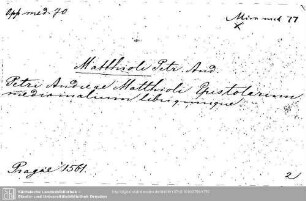 Opp med. 70
Misc med 77
x
Matthioli Petr. And.
Petri Andreae Matthioli Epistolarum
medicinalium libri quinque.
Pragae 1561.
2
Sächsische Landesbibliothek -
Staats- und Universitätsbibliothek Dresden